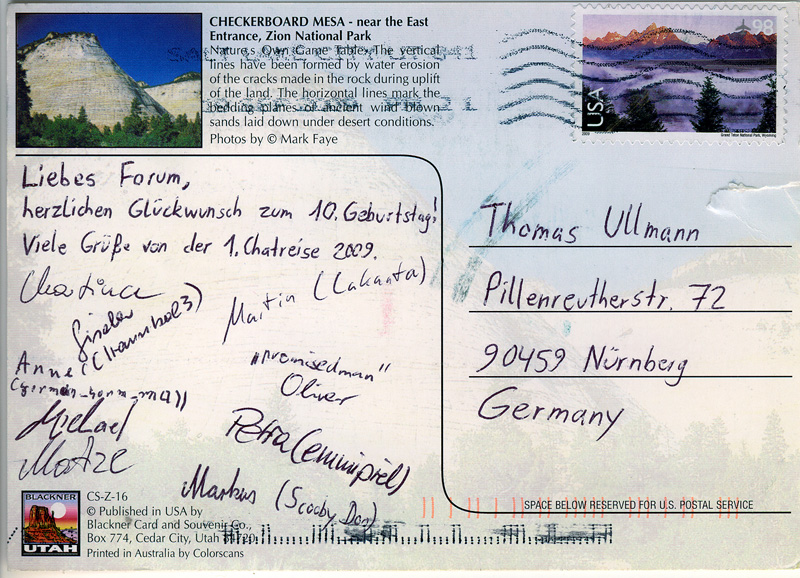 CHECKERBOARD MESA - near the East
Entrance, Zion National Park
Nature's Own Game Table. The vertical
lines have been formed by water erosion
of the cracks made in the rock during uplift
of the land. The horizontal lines mark the
bedding planes of ancient wind blown
sands laid down under desert conditions.
Photos by © Mark Faye
98
USA
2009
Grand Teton National Park, Wyoming
Liebes Forum,
herzlichen Glückwunsch zum 10. Geburtstag!
Viele Grüße von der 1. Chatreise 2009.
Martin (Lakanta)
Gisela
Anne
"promisedman"
Oliver
Michael
Matze
Petra (emmipiel)
Markus (Scooby Doo)
Thomas Ullmann
Pillenreutherstr. 72
90459 Nürnberg
Germany
BLACKNER
UTAH
CS-Z-16
© Published in USA by
Blackner Card and Souvenir Co.,
Box 774, Cedar City, Utah 84720
Printed in Australia by Colorscans
SPACE BELOW RESERVED FOR U.S. POSTAL SERVICE